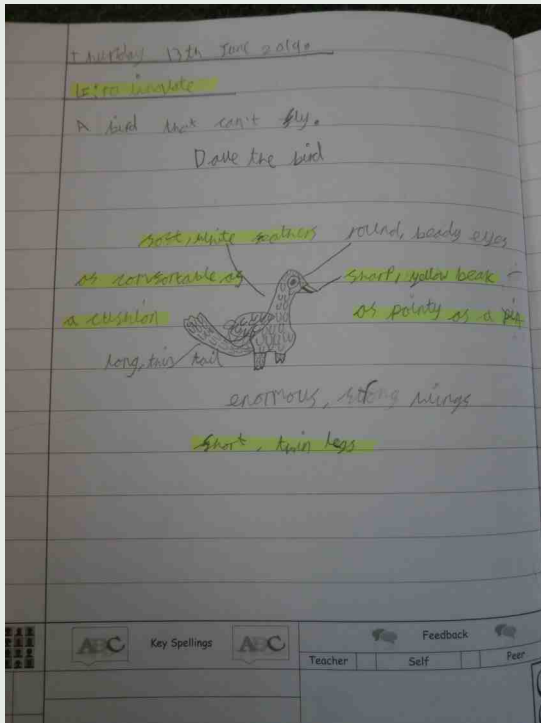 Thursday 13th June 2019.
LF: to innovate
A bird that can't fly.
Dave the bird
soft, white feathers
round, beady eyes
as comfortable as
a cushion
sharp, yellow beak -
as pointy as a pin
long, thin tail
enormous, strong wings
short, thin legs
ABC Key Spellings ABC
Feedback
Teacher Self Peer